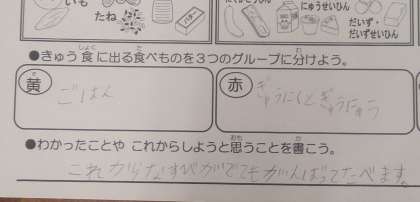 いも
たね
バター
にゅうせいひん
だいず・
だいずせいひん
●きゅう食に出る食べものを3つのグループに分けよう。
黄
ごはん
赤
ぎゅうにくとぎゅうにゅう
●わかったことや これからしようと思うことを書こう。
これからなすびがでてもがんばってたべます。